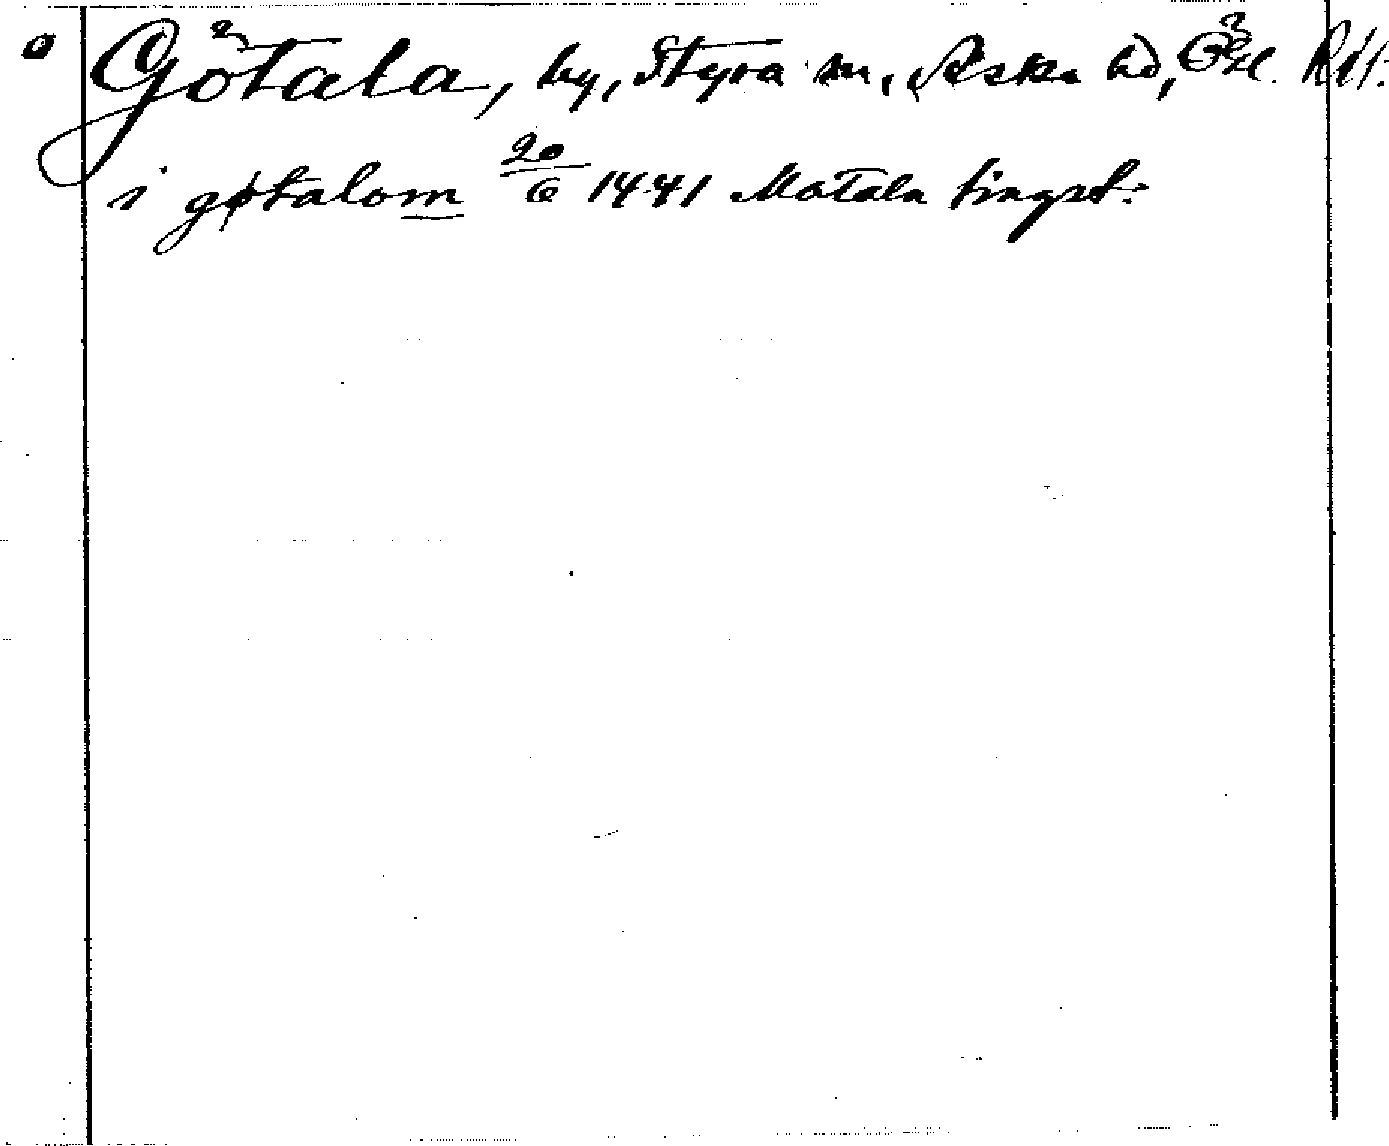 Götala, by, Styra sn, Aska hd, Ögl.
i gøtalom 20/6 1441 Motala tingst.